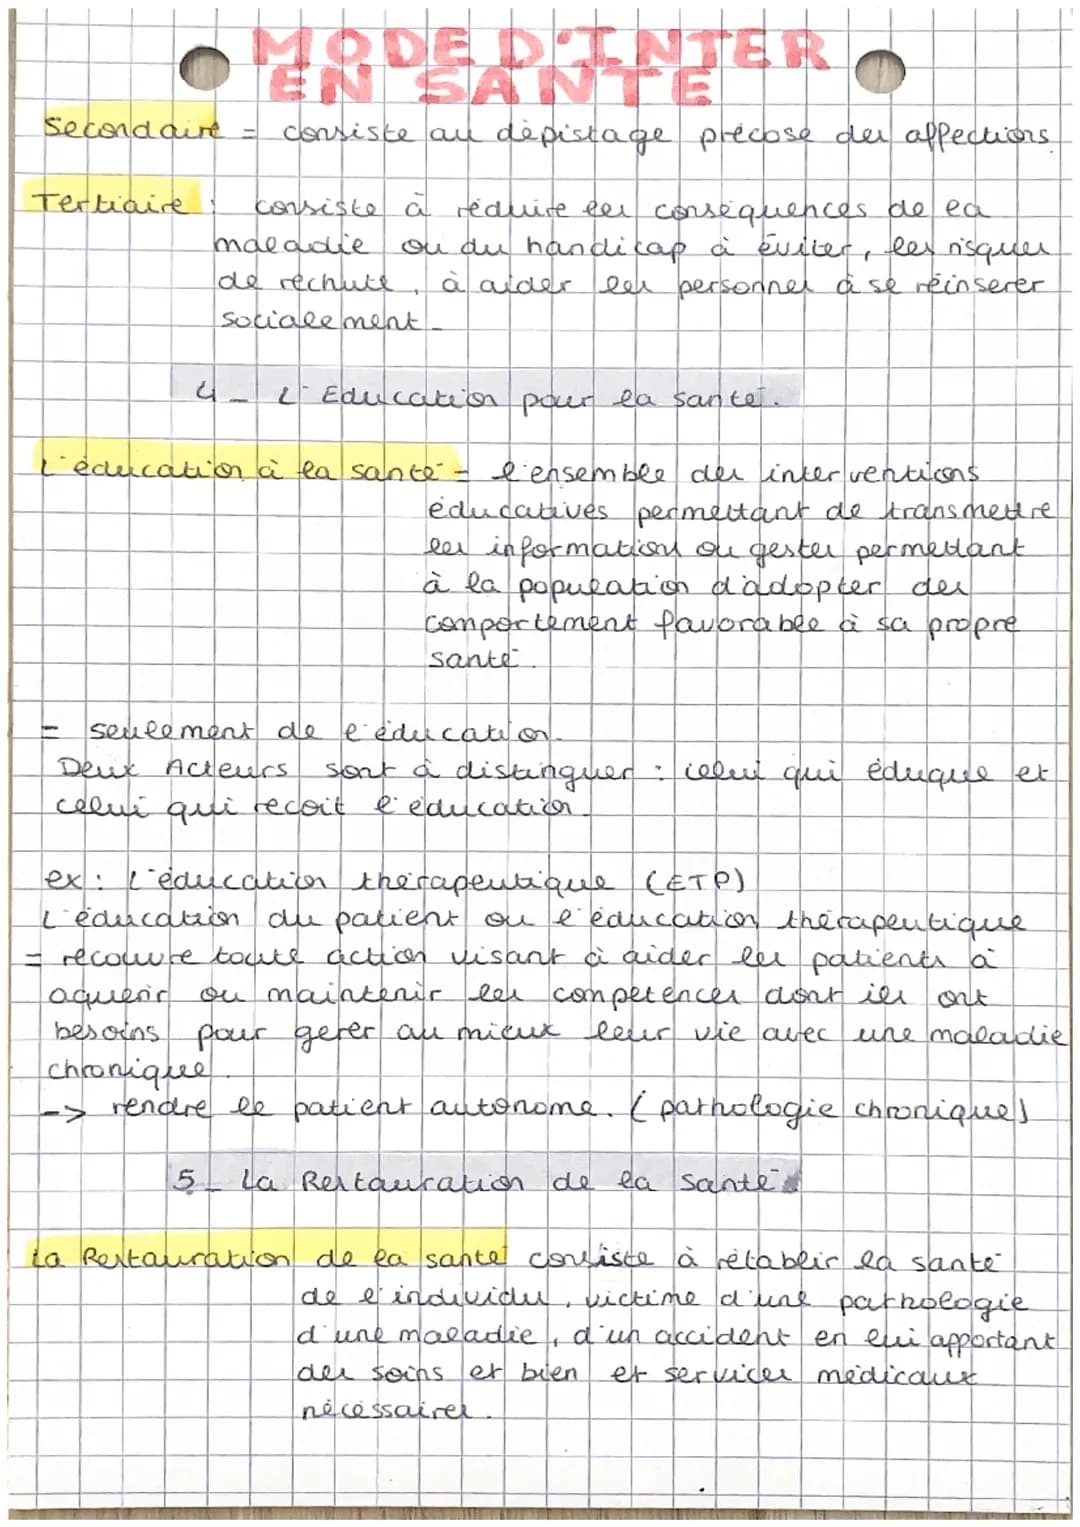 MODE D'INTER
EN SANTE
Secondaire = consiste au dépistage précose des affections.
Tertiaire : consiste à réduire les conséquences de la
maladie ou du handicap à éviter, les risques
de rechute, à aider les personnes à se réinserer
socialement.
4_ L'Education pour la santé.
L'éducation à la santé = l'ensemble des interventions
éducatives permettant de transmettre
les information ou gestes permettant
à la population d'adopter des
comportement favorable à sa propre
santé.
= seulement de l'éducation.
Deux Acteurs sont à distinguer : celui qui éduque et
celui qui recoit l'éducation.
ex : L'éducation thérapeutique (ETP)
L'éducation du patient ou l'éducation thérapeutique
= recouvre toute action visant à aider les patients à
aquerir ou maintenir les compétences dont ils ont
besoins pour gerer au mieux leur vie avec une maladie
chronique.
-> rendre le patient autonome. (pathologie chronique)
5_ La Restauration de la santé
La Restauration de la santé consiste à rétablir la santé
de l'individu, victime d'une pathologie
d'une maladie, d'un accident en lui apportant
des soins et bien et services médicaux
nécessaires.